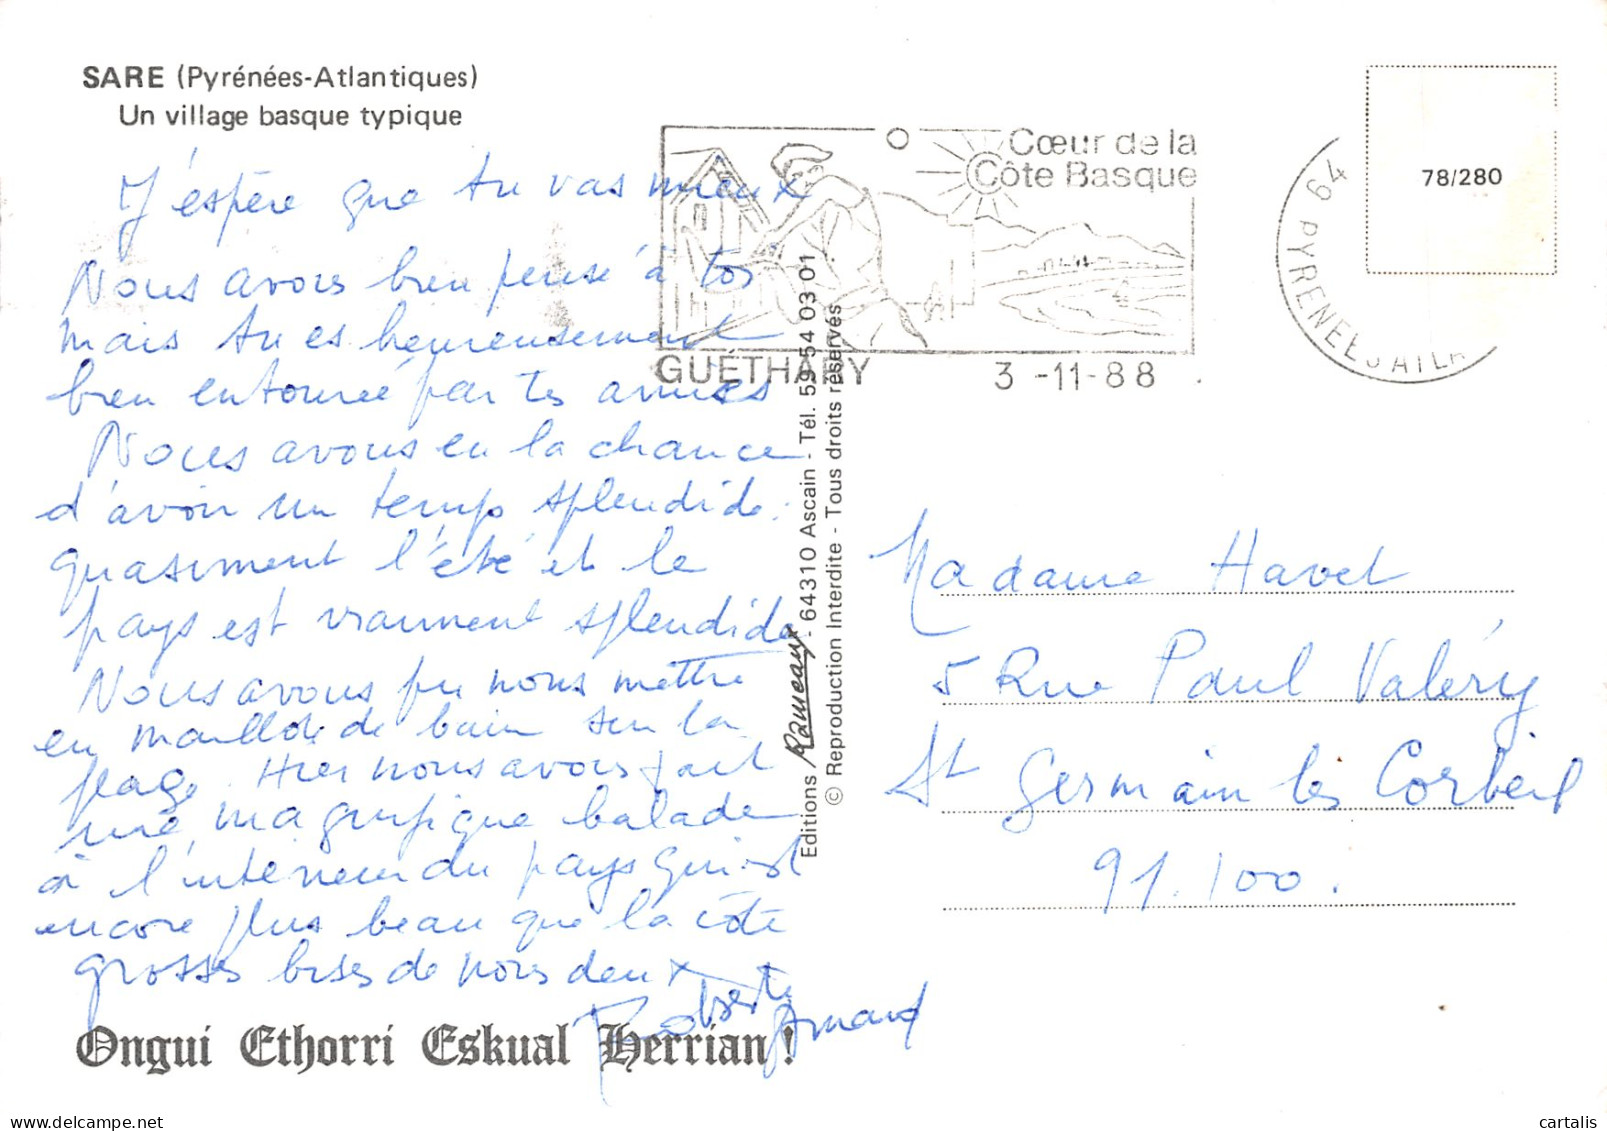 SARE (Pyrénées-Atlantiques)
Un village basque typique
J'espère que tu vas mieux
Nous avons bien pensé à toi
mais tu es heureusement
bien entourée par tes amies
Nous avons eu la chance
d'avoir un temps splendide :
quasiment l'été et le
pays est vraiment splendide
Nous avons pu nous mettre
en maillot de bain sur la
plage. Hier nous avons fait
une magnifique balade
à l'intérieur du pays qui est
encore plus beau que la côte
grosses bises de nous deux
Armand
Ongui Ethorri Eskual Herrian !
Cœur de la
Côte Basque
GUÉTHARY
3 -11-88
64 PYRENEES ATL
78/280
Editions Rameau - 64310 Ascain - Tél. 59 54 03 01
© Reproduction Interdite - Tous droits réservés
Madame Havet
5 Rue Paul Valéry
St Germain les Corbeil
91.100.
cartalis
delcampe.net